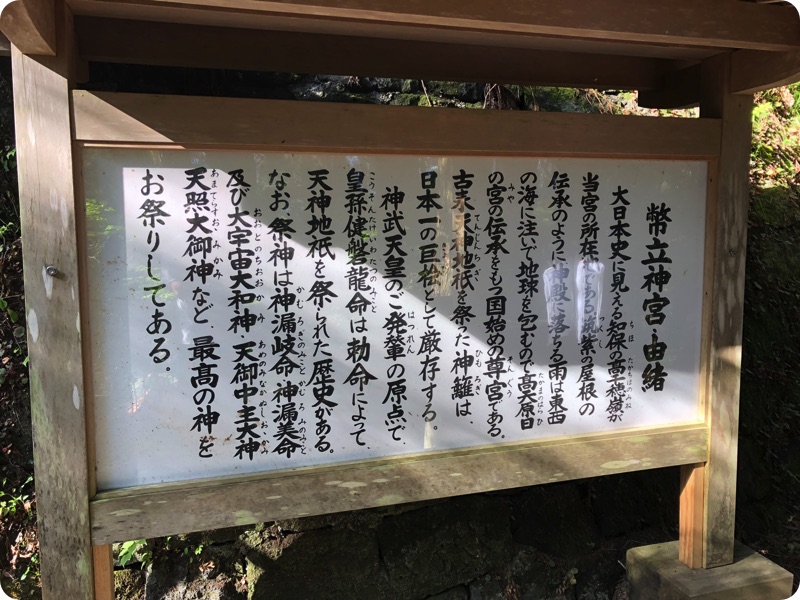 幣立神宮・由緒
大日本史に見える知保の高千穂嶺が
当宮の所在地である筑紫の屋根の
伝承のように神殿に落ちる雨は東西
の海に注いて地球を包むので高天原日
の宮の伝承をもつ国始めの尊宮である。
古来天神地祇を祭った神籬は、
日本一の巨桧として厳存する。
神武天皇のご発輦の原点で、
皇孫健磐龍命は勅命によって、
天神地祇を祭られた歴史がある。
なお、祭神は神漏岐命・神漏美命
及び大宇宙大和神・天御中主大神
天照大御神など、最高の神を
お祭りしてある。